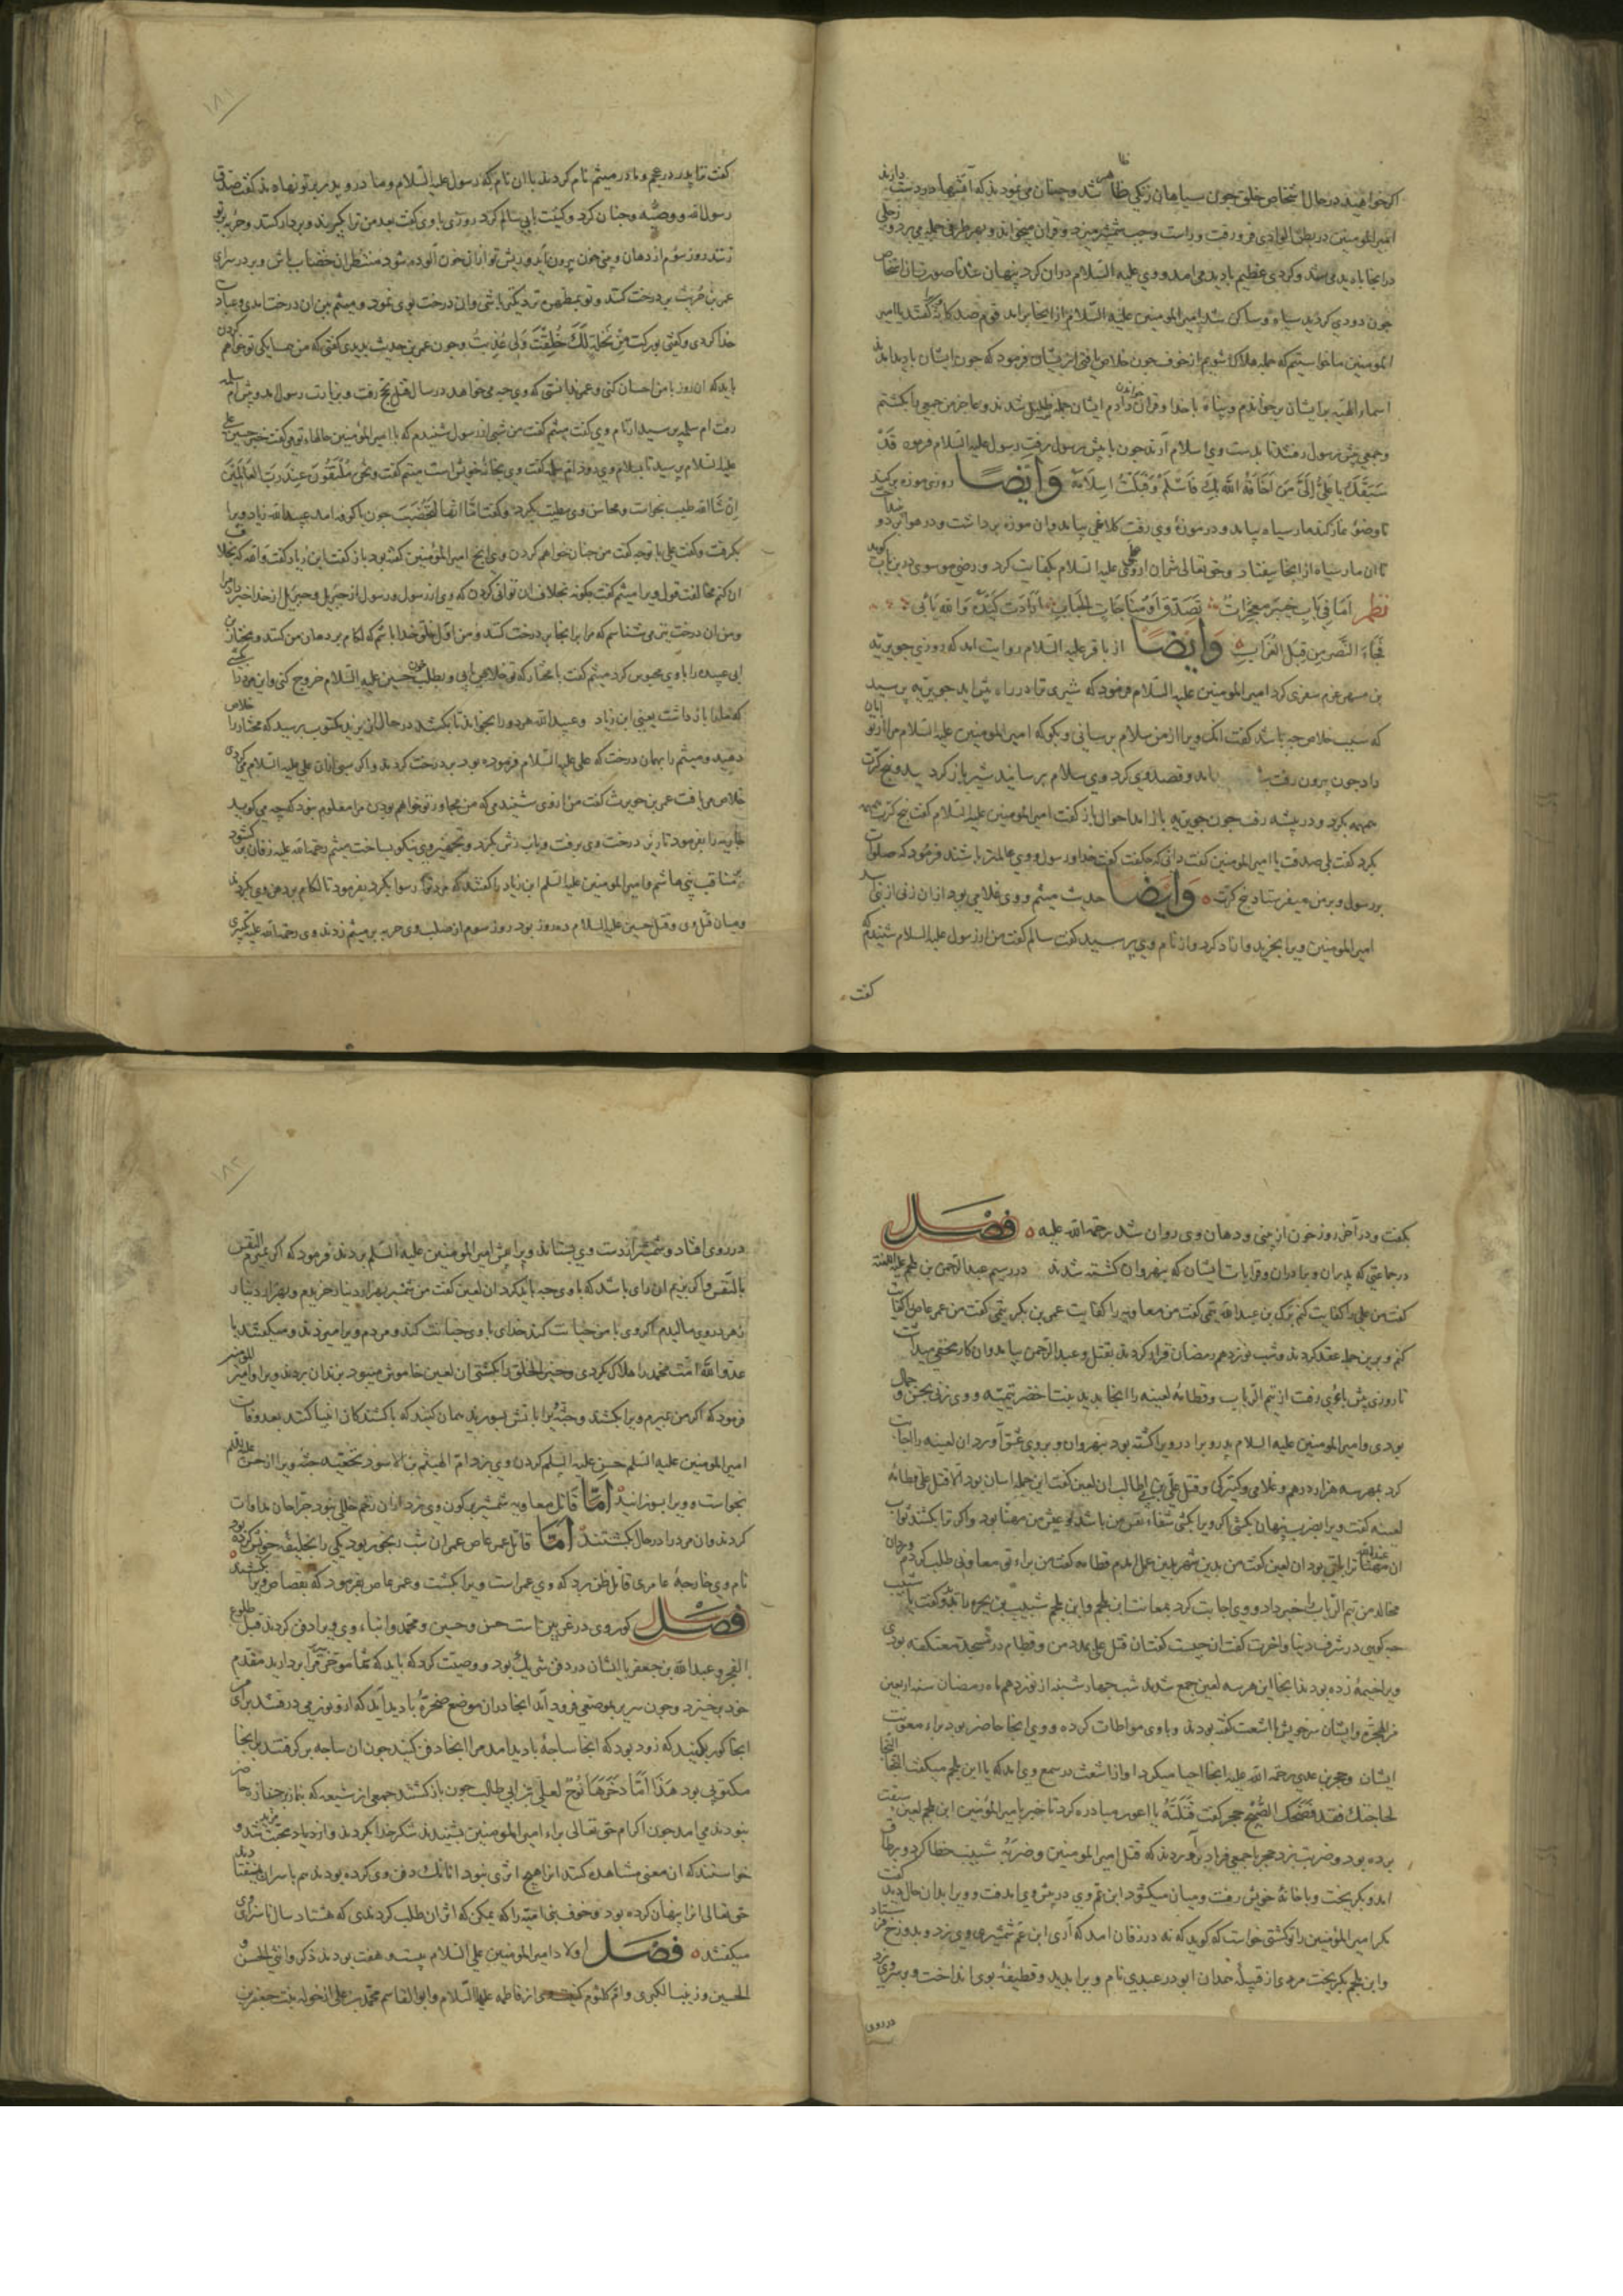 اکر خواهید در حال اشخاص خلق چون سیاهان زنکی ظاهر شد و چنان می نمود که آتشها در دست دارند
امیر المومنین در بطن الوادی فرو رفت و راست و چپ شمشیر میزد و قران میخواند و بهر طرف حمله می برد و رجلی
در انجا بادید می شد و کردی عظیم بادید می امد و وی علیه السلام دران کرد پنهان شد تا صورت ان اشخاص
چون دودی کردید سیاه و ساکن شد امیر المومنین علیه السلام از انجا برامد قوم صد کانه کفتند یا امیر
المومنین ما خواستیم که جمله هلاک شویم از خوف چون خلاص یافتی از یشان فرمود که چون ایشان بادید امدند
اسماء الهیه بر ایشان برخواندم و پناه با خدا و قران خواندن دادم ایشان جمله ذلیل شدند و عاجز من جمعی را بکشتم
و جمعی پیش رسول رفتند تا بدست وی اسلام آرند چون با پیش رسول رفت رسول علیه السلام فرمود قَدْ
سَبَقَكَ يا عَلِيُّ إِلَيَّ مَنْ أَخَافَهُ اللَّهُ بِكَ فَأَسْلَمَ وَقَبِلْتُ إِسْلَامَهُ وَایضًا روزی موزه برکند
تا وضوء نماز کند مار سیاه بیامد و در موزه وی رفت کلاغی بیامد و ان موزه برداشت و در هوا برد و بینداخت
تا ان مار سیاه از انجا بیفتاد و حق تعالی شر ان از علی علیه السلام کفایت کرد و رضی موسوی درین باب کوید
نظم اما فی باب خیبر معجزات تصدق او مناجات الحباب ارادت کیده والله یأبی
فجاء النصر من قبل الغراب وَایضًا از باقر علیه السلام روایت امد که روزی جویریه
بن مسهر عزم سفری کرد امیر المومنین علیه السلام فرمود که شیری ترا در راه پیش اید جویریه پرسید
که سبب خلاص چه باشد کفت انک ویرا از من سلام برسانی و بکو که امیر المومنین علیه السلام مرا از تو امان
داد چون بیرون رفت بیامد و قصد وی کرد وی سلام برسانید شیر باز کردید و پنج کرت
همهمه بکرد و در بیشه رفت چون جویریه باز امد احوال باز کفت امیر المومنین علیه السلام کفت پنج کرت همهمه
بکرد کفت بلی صدقت یا امیر المومنین کفت دانی که چکفت کفت خدا و رسول و وی عالمتر باشند فرمود که صلوات
بر رسول و بر من میفرستاد پنج کرت وَایضًا حدیث میثم و وی غلامی بود ازان زنی از بنی اسد
امیر المومنین ویرا بخرید و ازاد کرد و از نام وی پرسید کفت سالم کفت من از رسول علیه السلام شنیدم که
کفت
۱۸۱
کفت ترا پدر در عجم و مادر میثم نام کردند با ان نام که رسول علیه السلام و مادر و پدر بر تو نهاده اند کفت صدق
رسول الله و وصیه و چنان کرد و کنیت بابی سالم کرد روزی با وی کفت بعد من ترا بکیرند و بر دار کنند و حربه بر تو
زنند روز سوم از دهان و بینی خون بیرون آید و ریش تو ازان خون آلوده شود منتظر ان خضاب باش و بر در سرای
عمر بن حریث بر درخت کنند و تو بمطهره نزدیکتر باشی وان درخت بوی نمود و میثم بین ان درخت امدی و عبادت
خدا کردی و کفتی بورکت مِنْ نَخْلَةٍ لَكَ خُلِقْتُ وَلِي غُذِيتِ و چون عمر بن حریث بدیدی کفتی که من همسایکی تو خواهم کردن
باید که ان روز با من احسان کنی و عمر ندانستی که وی چه می خواهد در سال قتل بحج رفت و بزیارت رسول امد و پیش ام سلمه
رفت ام سلمه پرسید از نام وی کفت میثم کفت من شبی از رسول شنیدم که با امیر المومنین حالهاء تو می کفت خبر حسین علی
علیه السلام پرسید تا بسلام وی رود ام سلمه کفت وی بخانه خویش است میثم کفت ونحن مُلتَقُونَ عِندَ رَبِّ العَالَمِينَ
ان شاالله طیب بخواست و محاسن وی مطیب بکرد و کفت امّا انها ستخضب چون با کوفه امد عبیدالله زیاد ویرا
بکرفت و کفت علی با تو چه کفت من چنان خواهم کردن وی انچ امیر المومنین کفته بود باز کفت ابن زیاد کفت والله که بخلاف
ان کنم مخالفت قول ویرا میثم کفت چکونه بخلاف ان توانی کردن که وی از رسول و رسول از جبریل و جبریل از خدا خبر داد مرا
و من ان درخت نیز می شناسم که مرا بر انجا بر درخت کنند و من اوّل خلق خدا باشم که لکام بر دهان من کنند و مختار بن
ابی عبیده را با وی محبوس کرد میثم کفت با مختار که تو خلاص یابی و بطلب خون حسین علیه السلام خروج کنی و این مرد را بکشی
که ما را بازداشت یعنی ابن زیاد و عبیدالله هر دو را بخواند تا بکشد در حال از یزید مکتوب برسید که مختار را خلاص
دهید و میثم را بهمان درخت که علی علیه السلام فرموده بود بر درخت کردند و اکر سبّی ازان علی علیه السلام می کردی
خلاص می یافت عمر بن حریث کفت من از وی شنیدمی که من مجاور تو خواهم بودن مرا معلوم نبود که چه می کوید
جاریه را بفرمود تا زیر درخت وی برفت و آب زدش بکرد و تجمیر وی نیکو بساخت میثم رحمة الله علیه زفان بر کشود
بمناقب بنی هاشم و امیر المومنین علیه السلم ابن زیاد را کفتند که مردک رسوا بکرد بفرمود تا لکام بر دهن وی کردند
و میان قتل وی و قتل حسین علیه السلام ده روز بود روز سوم از صلب وی حربه بر میثم زدند وی رحمة الله علیه تکبیری
بکفت و در آخر روز خون از بینی و دهان وی روان شد رحمة الله علیه فصل
در جماعتی که پدران و برادران و قرابات ایشان که بنهروان کشته شدند در رسیم عبدالرحمن بن ملجم علیه اللعنه
کفت من علی را کفایت کنم برک بن عبدالله تمیمی کفت من معاویه را کفایت عمر بن بکر تمیمی کفت من عمر عاص را کفایت
کنم و برین جمله عقد کردند و شب نوزدهم رمضان قرار کردند بقتل و عبدالرحمن بیامد وان کار مخفی میداشت
تا روزی پیش یاری رفت از تیم الرباب و قطامه لعینه را انجا بدید بنت اخضر تیمیه و وی زنی بحسن و جمال
بودی و امیر المومنین علیه السلام پدر و برادر ویرا کشته بود بنهروان و بر وی عشق آورد ان لعینه را اجابت
کرد بمهر سه هزار درهم و غلامی و کنیزکی و قتل علی بن ابی طالب ان لعین کفت این جمله اسان بود الّا قتل علی قطامه
لعینه کفت ویرا بضرب پنهان بکشی اکر ویرا بکشی شفاء نفس من باشد و عیش من مهنّا بود و اکر ترا بکشند ثواب
ان مهنّاتر ان لعین کفت من بدین شهر بدین عمل امدم قطامه کفت من براء تو معاونی طلب کردم وردان
بن مجالد من تیم الرباب را خبر داد و وی اجابت کرد بمعاونت ابن ملجم و ابن ملجم شبیب بن بجره را بدید و کفت یا شبیب
چه کویی در شرف دنیا و اخرت کفت ان چیست کفت ان قتل علی بمدد من و قطام در مسجد معتکفه بودی
و برا خیمه زده بودند انجا این هر سه لعین جمع شدند شب چهارشنبه از نوزدهم ماه رمضان سنه اربعین
من الهجرة و ایشان سر خویش با اشعث کفته بودند و با وی مواطات کرده و وی انجا حاضر بود براء معونت
ایشان و حجر بن عدی رحمة الله علیه انجا احیا میکرد اواز اشعث در سمع وی امد که یا ابن ملجم میکفت النجا النجا
لحاجتك فقد فضحك الصبح حجر کفت قَتَلْتَهُ یا اعور مبادره کرد تا خبر بامیر المومنین ابن ملجم لعین سبقت
برده بود و ضربت بزد حجر با جمعی فریاد براوردند که قتل امیر المومنین و ضربه شبیب خطا کرد و بر طاق
امد و بکریخت و با خانه خویش رفت و میان میکشود ابن عم وی در پیش وی رفت و ویرا بدان حال دید کفت
مکر امیر المومنین را تو کشتی خواست که کوید که نه در زفان امد که آری ابن عم شمشیری وی بزد و بدوزخ فرستاد
و ابن ملجم بکریخت مردی از قبیله همدان ابو در عبدی نام ویرا بدید و قطیفه بوی انداخت و بر وی بزد
در روی
۱۸۲
در روی افتاد و شمشیر از دست وی بستاند ویرا پیش امیر المومنین علیه السلم بردند فرمود که اکر بمیرم النفس
بالنفس و اکر بزیم ان رای باشد که با وی چه باید کرد ان لعین کفت من شمشیر بهزار دینار خریدم و بهزار دینار
زهر در وی مالیدم اکر وی با من خیانت کند خدای با وی خیانت کند و مردم ویرا میزدند و میکفتند یا
عدوالله امّت محمد را هلاک کردی و خیر الخلق را بکشتی ان لعین خاموش میبود بزندان بردند ویرا و امیر المومنین
فرمود که اکر من بمیرم ویرا بکشند و جثّه ویرا باتش بسوزند همان کنید که با کشندکان انبیا کنند بعد وفات
امیر المومنین علیه السلم حسن علیه السلم کردن وی بزد ام الهیثم بن الاسود نخعیه جثه ویرا از حسن علیه السلم
بخواست و ویرا بسوزانید اَمّا قاتل معاویه شمشیر بر کون وی زد ازان زخم خللی نبود جراحان مداوات
کردند وان مرد را در حال بکشتند اَمّا قاتل عمر عاص عمر ان شب رنجور بود یکی را بخلیفه خویش کرده بود
نام وی خارجه عامری قاتل ظن برد که وی عمر است ویرا بکشت و عمر عاص بفرمود که بقصاص ویرا بکشتند
فصل کور وی در غریین است حسن و حسین و محمد و ابناء وی ویرا دفن کردند قبل طلوع
الفجر و عبدالله بن جعفر با ایشان در دفن شریک بود و وصیت کرد که باید که شما موخّر سریر بردارید مقدم
خود برخیزد و چون سریر بموضعی فرود آید انجا دران موضع صخره بادید آید که ازو نور می درفشد برای من
انجا کور بکنید که زود بود که انجا ساجهٔ بادید امد مرا انجا دفن کنید چون ان ساجه برکرفتند بر انجا
مکتوبی بود هَذَا امّا دخَرَها نُوحٌ لعلی بن ابی طالب چون بازکشتند جمعی از شیعه که بنماز جنازه حاضر
نبودند می امدند چون اکرام حق تعالی براء امیر المومنین بشنیدند شکر خدا کردند و ازدیاد محبت شد و مزید
خواستند که ان معنی مشاهده کنند ازان هیچ اثری نبود انانک دفن وی کرده بودند هم با سر ان نیفتادند
حق تعالی انرا پنهان کرده بود و خوف بنی امیه را که ممکن که اثر ان طلب کردندی که هشتاد سال ناسزای وی
میکفتند فصل اولاد امیر المومنین علی السلام بیست و هفت بودند ذکر و انثی الحسن و
الحسین و زینب الکبری و ام کلثوم از فاطمه علیها السلام و ابوالقاسم محمد بن علی از خوله بنت جعفر بن